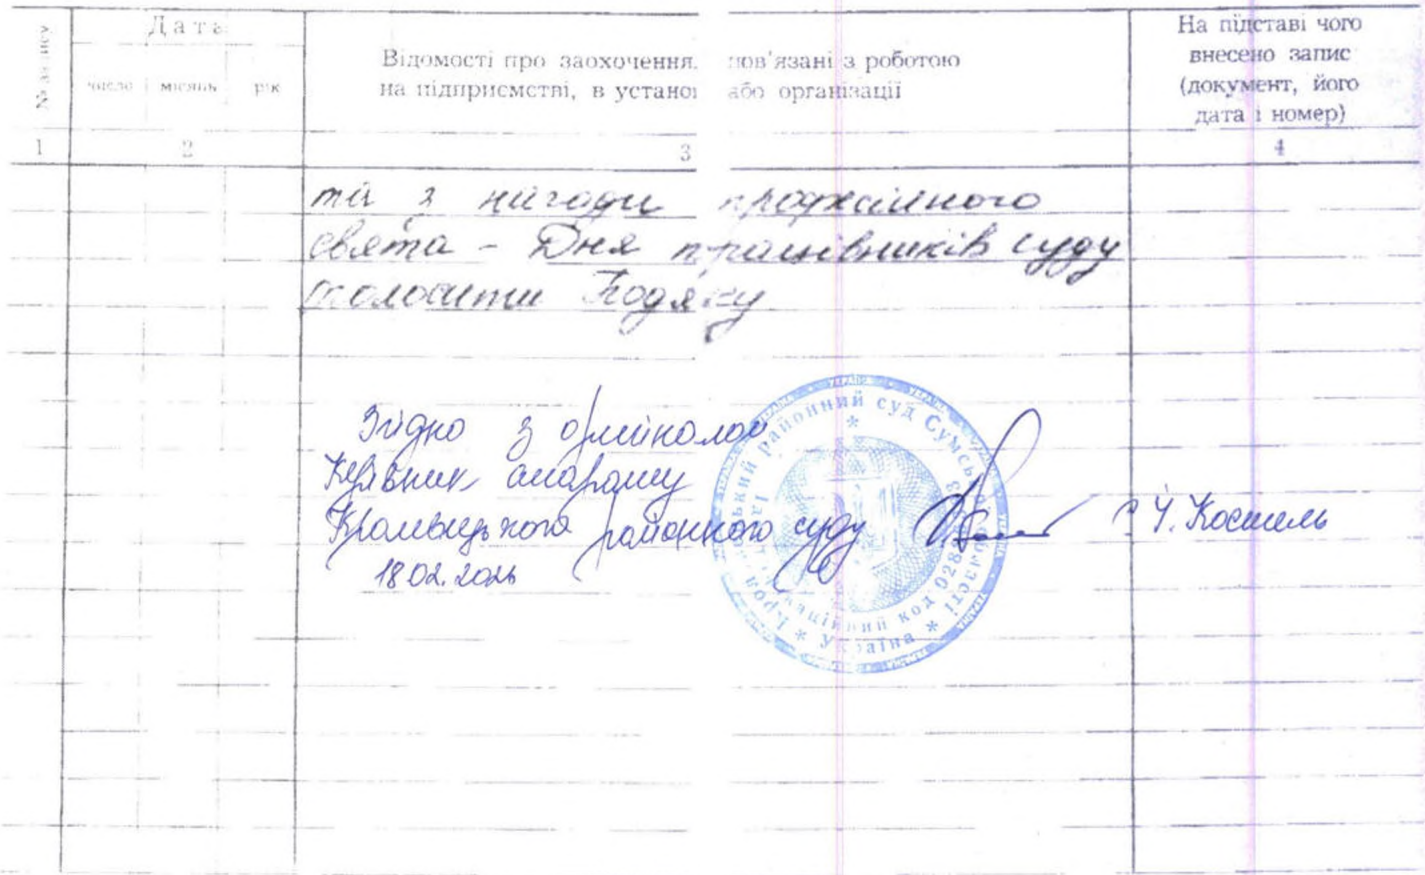 № запису
Дата
число місяць рік
Відомості про заохочення, пов'язані з роботою
на підприємстві, в установі або організації
На підставі чого
внесено запис
(документ, його
дата і номер)
1 2 3 4
та з нагоди професійного
свята - Дня працівників суду
оголосити Подяку
Згідно з оригіналом
Керівник апарату
Кролевецького районного суду
І. Кошель
18.02.2026
районний суд Сумської області
код 028
* Україна *